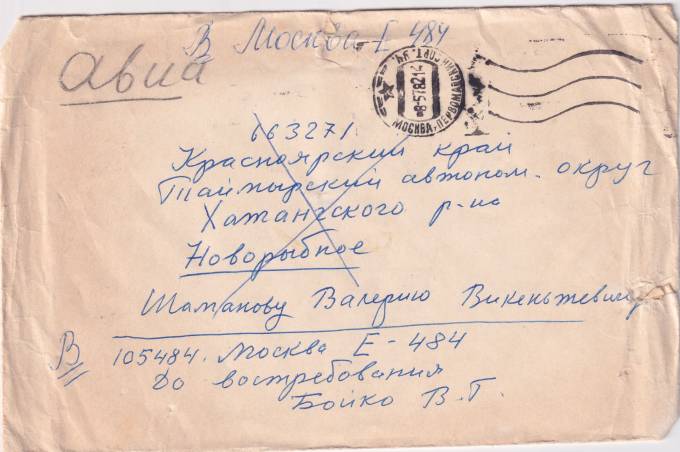 В Москва-Е 484
авиа
МОСКВА, ПЕРВОМАЙСКИЙ СОРТ. УЧ.
-8-5782
663271
Красноярский край
Таймырский автоном. округ
Хатангского р-на
Новорыбное
Шаманову Валерию Викентьевичу
В 105484. Москва Е-484
До востребования
Бойко В.Г.